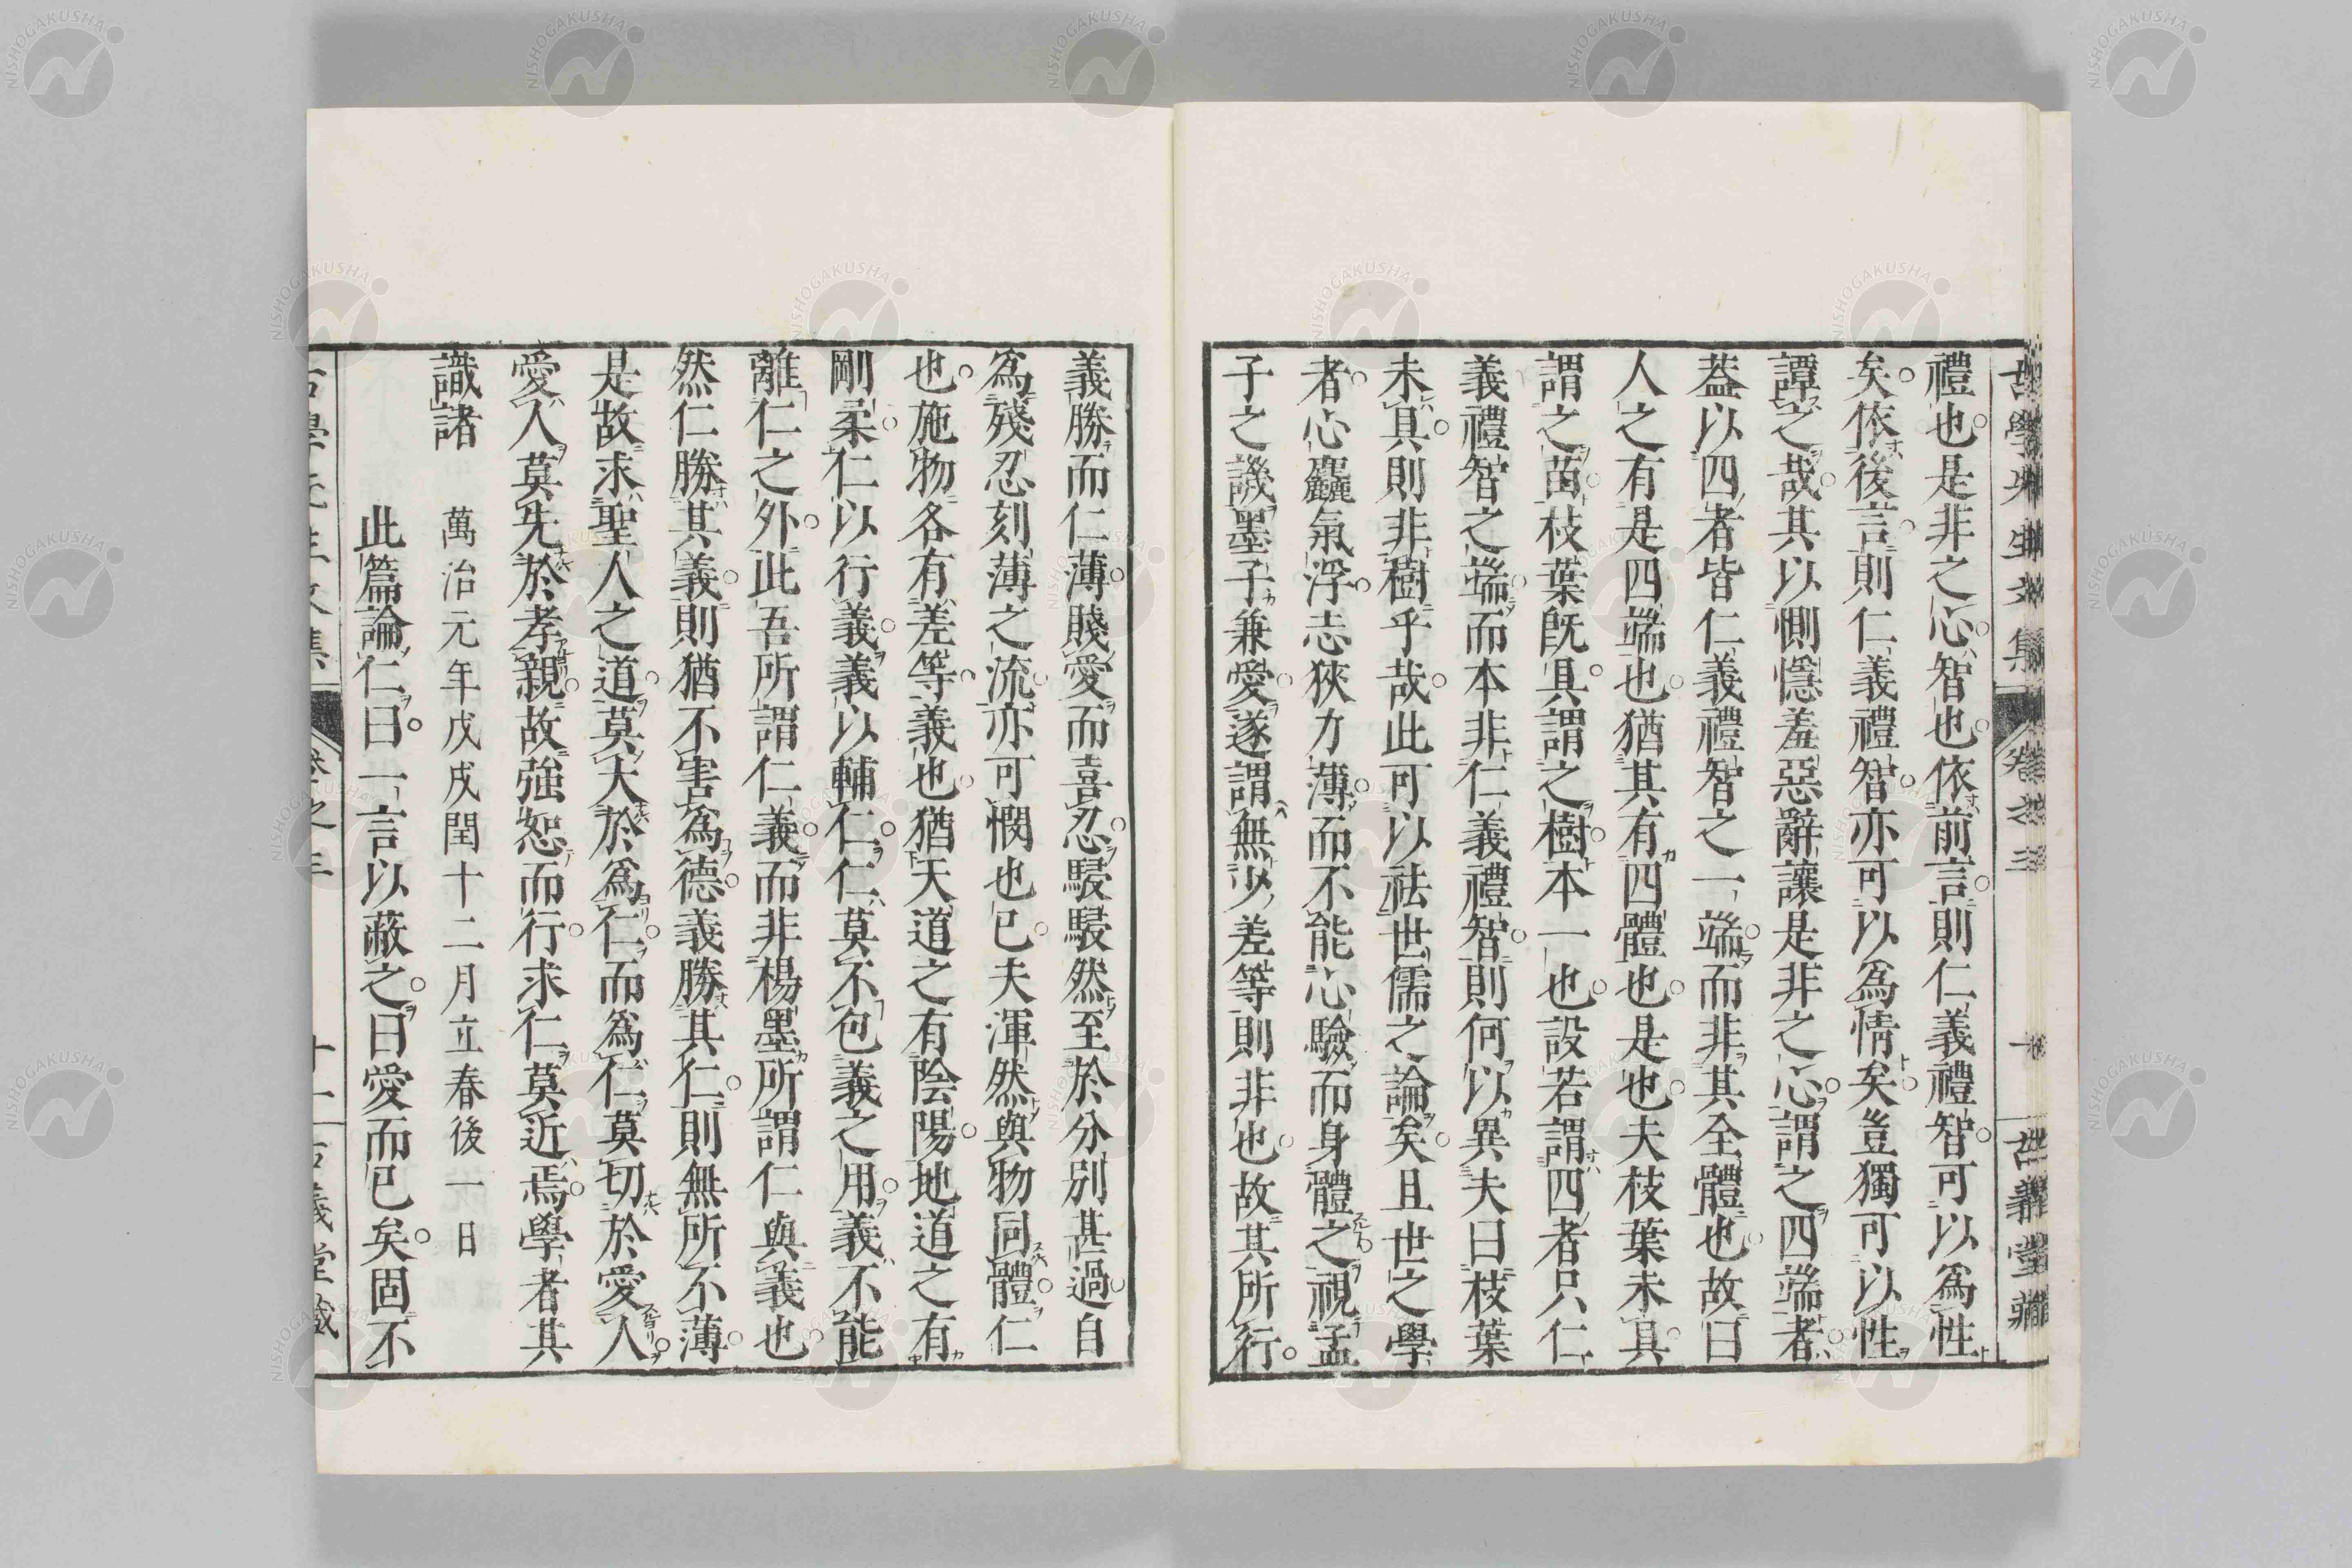 古學先生文集 卷之三 古義堂藏
禮也是非之心智也依前言則仁義禮智可以爲性
矣依後言則仁義禮智亦可以爲情矣豈獨可以性
譚之哉其以惻隱羞惡辭讓是非之心謂之四端者
葢以四者皆仁義禮智之一端而非其全體也故曰
人之有是四端也猶其有四體也是也夫枝葉未具
謂之苗枝葉旣具謂之樹本一也設若謂四者只仁
義禮智之端而本非仁義禮智則何以異夫曰枝葉
未具則非樹乎哉此可以祛世儒之論矣且世之學
者心麤氣浮志狹力薄而不能心驗而身體之視孟
子之譏墨子兼愛遂謂無少差等則非也故其所行
義勝而仁薄賤愛而喜忍駸駸然至於分別甚過自
爲殘忍刻薄之流亦可憫也已夫渾然與物同體仁
也施物各有差等義也猶天道之有陰陽地道之有
剛柔仁以行義義以輔仁仁莫不包義之用義不能
離仁之外此吾所謂仁義而非楊墨所謂仁與義也
然仁勝其義則猶不害爲德義勝其仁則無所不薄
是故求聖人之道莫大於爲仁而爲仁莫切於愛人
愛人莫先於孝親故強恕而行求仁莫近焉學者其
識諸 萬治元年戊戌閏十二月立春後一日
此篇論仁曰一言以蔽之曰愛而已矣固不
古學先生文集 卷之三 十一 古義堂藏
NISHOGAKUSHA